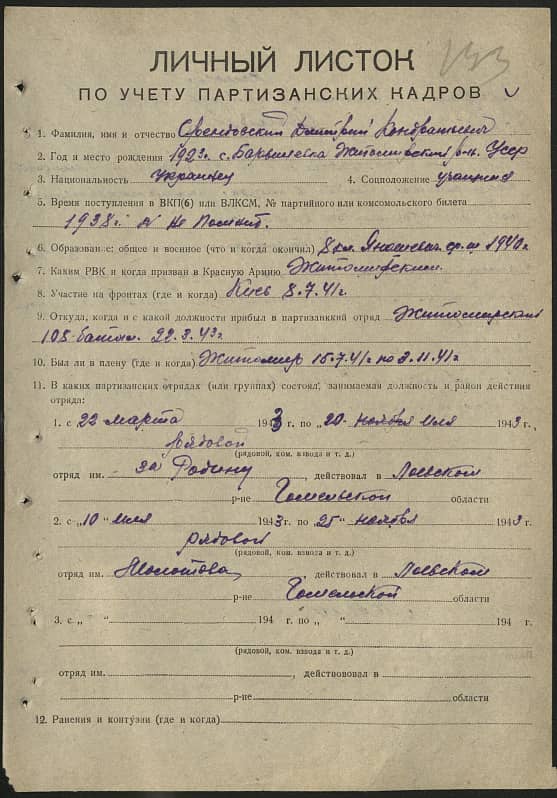 ЛИЧНЫЙ ЛИСТОК
ПО УЧЕТУ ПАРТИЗАНСКИХ КАДРОВ
1. Фамилия, имя и отчество Дмитрий Кондратьевич
2. Год и место рождения 1923 г. с. Барвиновка Житомирский р-н УССР
3. Национальность украинец 4. Соцположение учащийся
5. Время поступления в ВКП(б) или ВЛКСМ, № партийного или комсомольского билета
1938 г. № не помнит.
6. Образование: общее и военное (что и когда окончил) 8 кл. 1940 г.
7. Каким РВК и когда призван в Красную Армию Житомирским
8. Участие на фронтах (где и когда) Киев 8.7.41 г.
9. Откуда, когда и с какой должности прибыл в партизанкий отряд Житомирский
108 батал. 22.3.43 г.
10. Был ли в плену (где и когда) Житомир 15.7.41 г по 3.11.41 г
11. В каких партизанских отрядах (или группах) состоял, занимаемая должность и район действия
отряда:
1. с 22 марта 1943 г. по "20" ноября июля 1943 г.,
рядовой
(рядовой, ком. взвода и т. д.)
отряд им. за Родину, действовал в Лоевском
р-не Гомельской области
2. с "10" июля 1943 г. по "25" ноября 1943 г.
рядовой
(рядовой, ком. взвода и т. д.)
отряд им. Молотова, действовал в Лоевском
р-не Гомельской области
3. с „ " 194 г. по „ " 194 г.
(рядовой, ком. взвода и т. д.)
отряд им. , действововал в
р-не области
12. Ранения и контузии (где и когда)